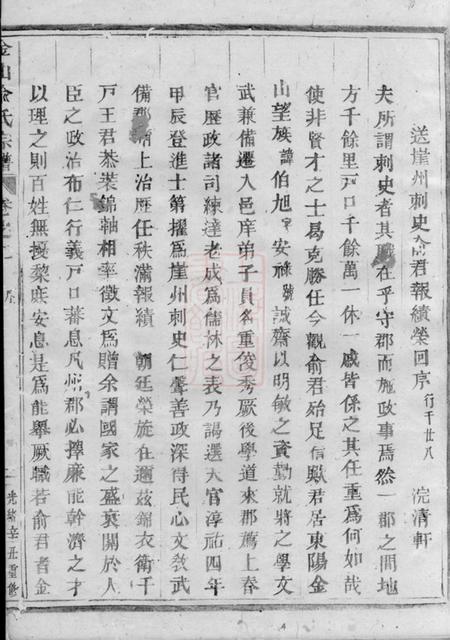 送崖州刺史俞君報績榮回序 行千廿八 浣清軒
夫所謂刺史者其職在乎守郡而施政事焉然一郡之間地
方千餘里戸口千餘萬一休一戚皆係之其任重為何如哉
使非賢才之士曷克勝任今觀俞君殆足信歟君居東陽金
山望族諱伯旭字安祿號誠齋以明敏之資勤就將之學文
武兼備遷入邑庠弟子員名重俊秀厥後學道來郡薦上春
官歴政諸司練達老成為儒林之表乃謁選天官淳祐四年
甲辰登進士第擢為崖州刺史仁聲善政深得民心文敎武
備郡稱上治歴任秩滿報績 朝廷榮旋在邇茲錦衣衛千
戸王君恭裝錦軸相率徵文為贈余謂國家之盛衰關於人
臣之政治布仁行義戸口蕃息凡州郡必擇廉能幹濟之才
以理之則百姓無擾黎庶安息是為能舉厥職若俞君者金
金山俞氏宗譜 卷之一
光緒辛丑重修